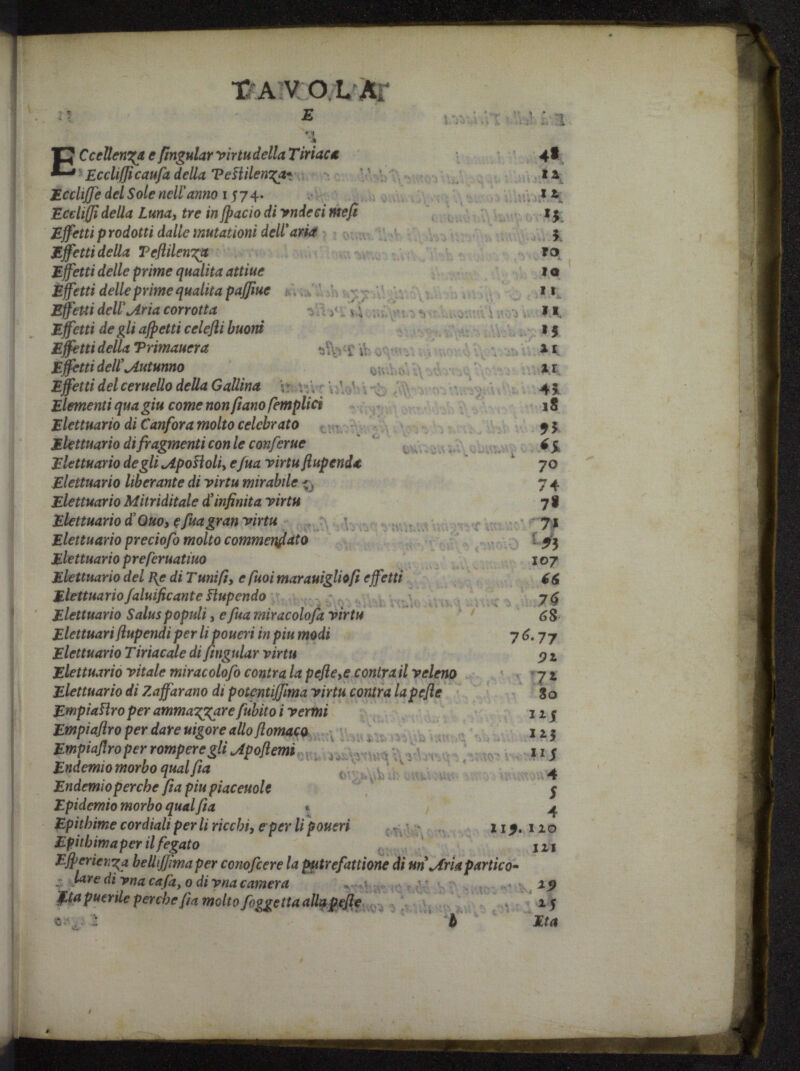 TAVOLA
E
ECcellenza e singular virtu della Tiriaca 48
Ecclissi causa della Pestilenza 12
Ecclisse del Sole nell'anno 1574. 12
Ecclissi della Luna, tre in spacio di vndeci mesi 13
Effetti prodotti dalle mutationi dell'aria 3
Effetti della Pestilenza 10
Effetti delle prime qualita attiue 10
Effetti delle prime qualita passiue 11
Effetti dell'Aria corrotta 11
Effetti de gli aspetti celesti buoni 15
Effetti della Primauera 21
Effetti dell'Autunno 21
Effetti del ceruello della Gallina 43
Elementi qua giu come non siano semplici 18
Elettuario di Canfora molto celebrato 93
Elettuario di fragmenti con le conserue 65
Elettuario de gli Apostoli, e sua virtu stupenda 70
Elettuario liberante di virtu mirabile 74
Elettuario Mitriditale d'infinita virtu 78
Elettuario d'Ouo, e sua gran virtu 71
Elettuario precioso molto commendato 93
Elettuario preseruatiuo 107
Elettuario del Re di Tunisi, e suoi marauigliosi effetti 66
Elettuario saluificante stupendo 76
Elettuario Salus populi, e sua miracolosa virtu 68
Elettuari stupendi per li poueri in piu modi 76.77
Elettuario Tiriacale di singular virtu 92
Elettuario vitale miracoloso contra la peste, e contra il veleno 72
Elettuario di Zaffarano di potentissima virtu contra la peste 80
Empiastro per ammazzare subito i vermi 125
Empiastro per dare uigore allo stomaco 123
Empiastro per rompere gli Apostemi 115
Endemio morbo qual sia 4
Endemio perche sia piu piaceuole 5
Epidemio morbo qual sia 4
Epithime cordiali per li ricchi, e per li poueri 119. 120
Epithima per il fegato 121
Esperienza bellissima per conoscere la putrefattione di un'Aria partico-
lare di vna casa, o di vna camera 29
Eta puerile perche sia molto soggetta alla peste 25
b Eta